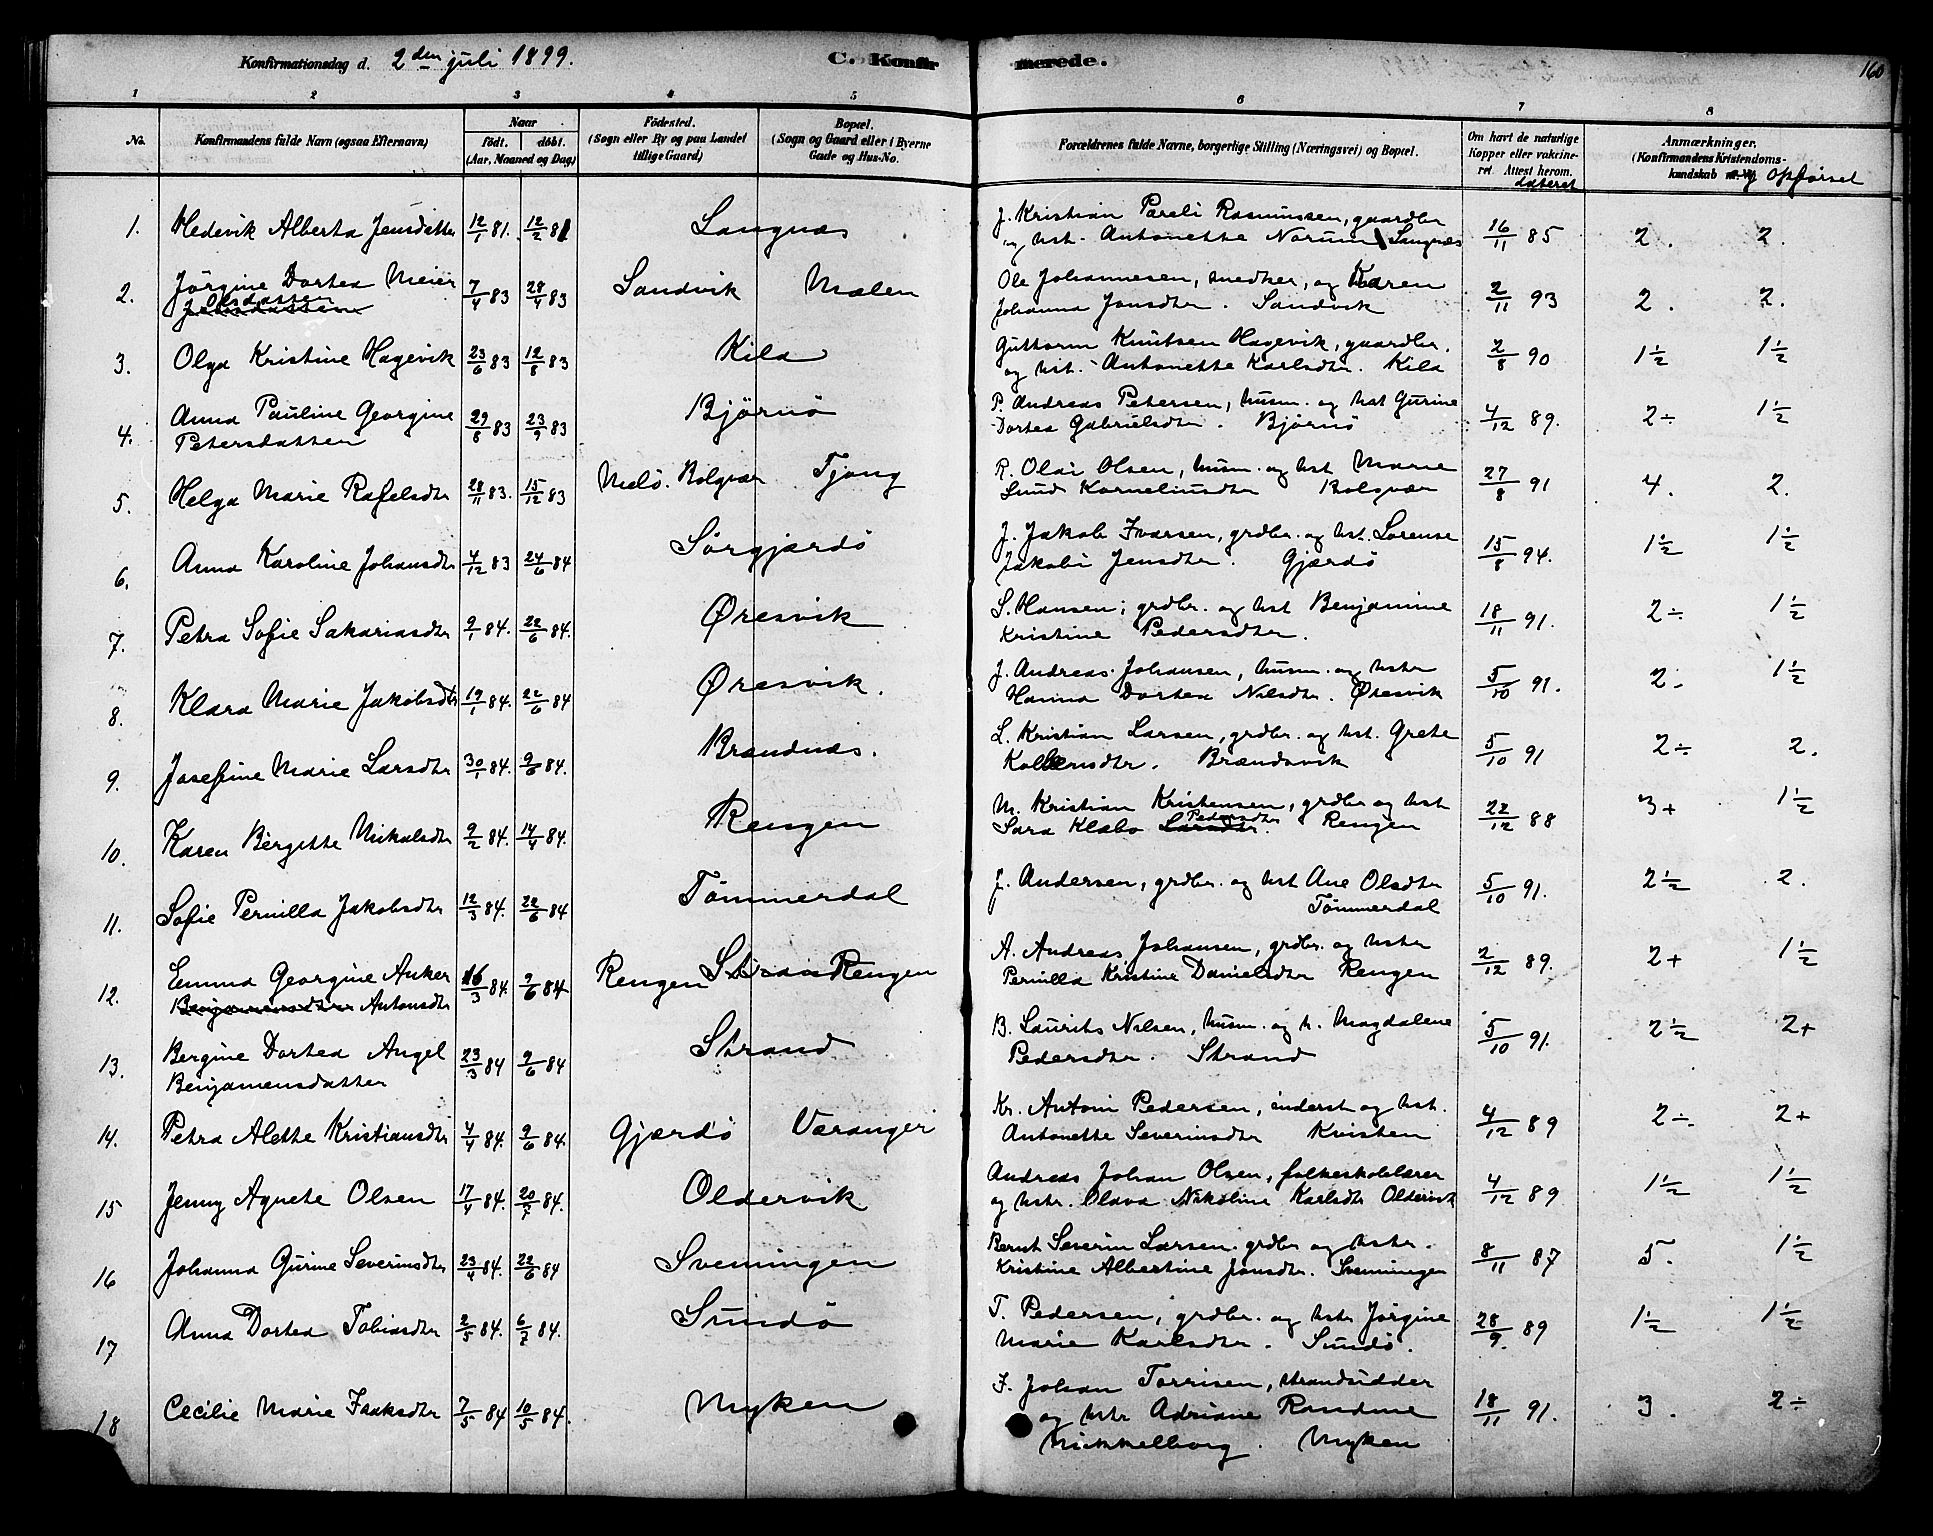 Konfirmationsdag d. 2den juli 1899.
C. Konfirmerede.
160
1 2 3 4 5 6 7 8
No.
Konfirmandens fulde Navn (ogsaa Efternavn)
Naar
födt. döbt.
(Aar, Maaned og Dag)
Födested.
(Sogn eller By og paa Landet
tillige Gaard)
Bopæl.
(Sogn og Gaard eller i Byerne
Gade og Hus-No.
Forældrenes fulde Navne, borgerlige Stilling (Næringsvei) og Bopæl.
Om havt de naturlige
Kopper eller vaccine-
ret. Attest herom.
dateret
Anmærkninger.
(Konfirmandens Kristendoms-
kundskab og opførsel
1. Hedevik Alberta Jensdatter 12/1 81. 12/2 81 Langnæs J. Kristian Pareli Rasmussen, gaardbr 16/11 85 2. 2.
og hst. Antonette Norum Langnæs
2. Jörgine Dortea Meier 7/4 83 28/4 83 Sandvik Mælen Ole Johannesen, snedker, og Karen 2/11 93 2. 2.
Olsdatter
Johanna Jonsdtr. Sandvik
3. Olga Kristine Hagevik 23/6 83 12/8 83 Kila Guttorm Knutsen Hagevik, gaardbr. 2/8 90 1½ 1½
og hst. Antonette Karlsdtr. Kila
4. Anna Pauline Georgine 29/8 83 23/9 83 Bjørnö P. Andreas Petersen, husm. og hst Gurine 4/12 89. 2÷ 1½
Petersdatter
Dortea Gabrielsdtr. Bjørnö
5. Helga Marie Rafelsdtr 28/11 83. 15/12 83 Melö. Bolgvær Tjong R. Olai Olsen, husm. og hst Marie 27/8 91 4. 2.
Sund Korneliusdtr Bolsvær
6. Anna Karoline Johansdtr 4/12 83 24/6 84 Sörgjærdö J. Jakob Ivarsen, grdbr. og hst. Lorense 15/8 94. 1½ 1½
Jakobi Jensdtr. Gjærdö
7. Petra Sofie Sakariasdtr 9/1 84. 22/6 84. Øresvik S. Hansen, grdbr. og hst Benjamine 18/11 91. 2÷ 1½
Kristine Pedersdtr.
8. Klara Marie Jakobsdtr 19/1 84. 22/6 84 Øresvik. J. Andreas Johansen, husm. og hstr 5/10 91. 2. 1½
Hanna Dortea Nilsdtr. Øresvik
9. Josefine Marie Larsdtr 30/1 84. 9/6 84. Brændnæs. L. Kristian Larsen, grdbr. og hst. Grete 5/10 91 2÷ 2.
Brændsvik
10. Karen Bergitte Mikalsdtr 9/2 84. 14/4 84. Rengen M. Kristian Kristensen, grdbr og hst 22/12 88 3+ 1½
Sara Klæbo Larsdtr. Pedersdtr Rengen
11. Sofie Pernilla Jakobsdtr 12/3 84. 22/6 84 Tömmerdal J. Andersen, grdbr. og hst Ane Olsdtr 5/10 91. 2½ 2.
Tömmerdal
12. Emma Georgine Anker 16/3 84. 9/6 84 Rengen Strand Rengen A. Andreas Johansen, grdbr. og hstr 2/12 89. 2+ 1½
Benjaminsdtr Antonsdtr
Pernilla Kristine Danielsdtr Rengen
13. Bergine Dortea Angel 23/3 84 9/6 84 Strand B. Laurits Nilsen, husm. og h. Magdalene 5/10 91. 2½ 2+
Benjamensdatter
Pedersdtr. Strand
14. Petra Alette Kristiansdtr 4/4 84. 9/6 84. Gjærdö Varanger Kr. Anton Pedersen, inderst og hst. 4/12 89 2÷ 2+
Antonette Severinsdtr Kvisten
15 Jenny Agnete Olsen 17/4 84. 20/7 84. Oldervik Andreas Johan Olsen, folkeskolelærer 4/12 89 1½ 1½
og hstr. Olava Nikoline Karlsdtr Oldervik
16 Johanna Gurine Severinsdtr 23/4 84. 22/6 84 Svenningen Bernt Severin Larsen. grdbr og hstr. 8/11 87 5. 1½
Kristine Albertine Jonsdtr. Svenningen
17 Anna Dortea Tobiasdtr 2/5 84. 6/7 84. Sundö T. Pedersen, grdbr. og hstr Jörgine 28/9. 89 1½ 1½
Marie Karlsdtr. Sundö.
18 Cecilie Marie Isaksdtr 7/5 84 10/5 84. Myken I. Johan Torrisen, strandsidder 18/11 91. 3. 2÷
og hstr Adriane Randine
Mikkelborg. Myken